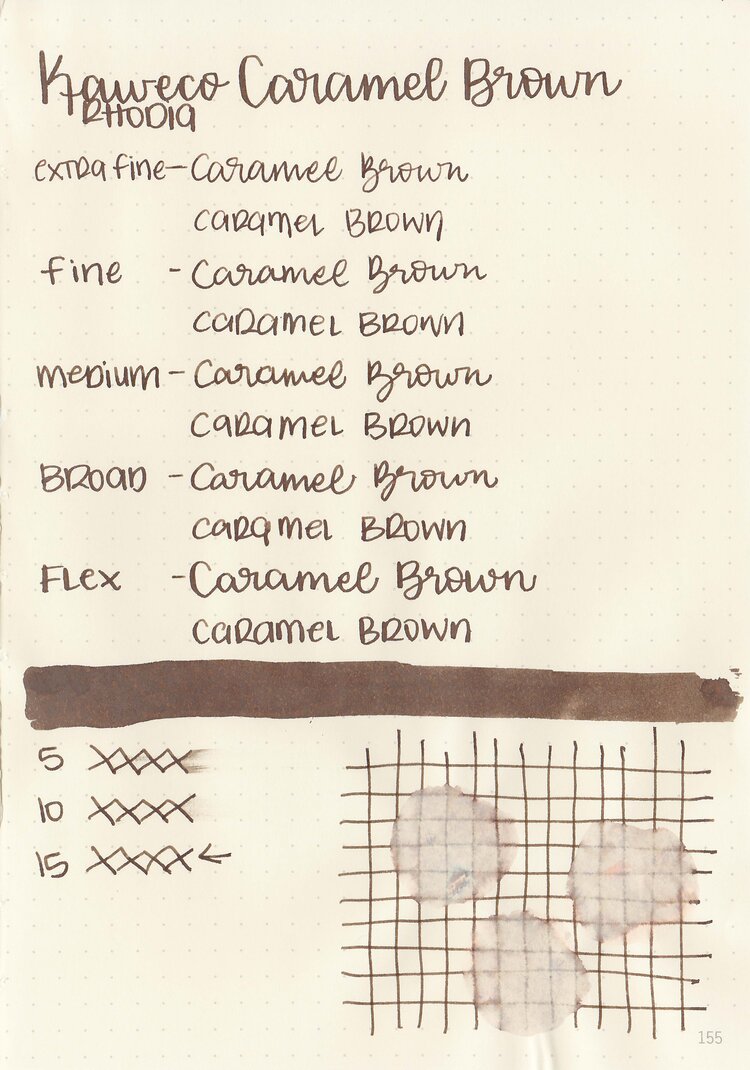 Kaweco Caramel Brown
RHODIA
EXTRA FINE - Caramel Brown
CARAMEL BROWN
fine - Caramel Brown
CARAMEL BROWN
MEDIUM - Caramel Brown
CARAMEL BROWN
BROAD - Caramel Brown
CARAMEL BROWN
FLEX - Caramel Brown
CARAMEL BROWN
5 XXXX
10 XXXX
15 XXXX ←
155